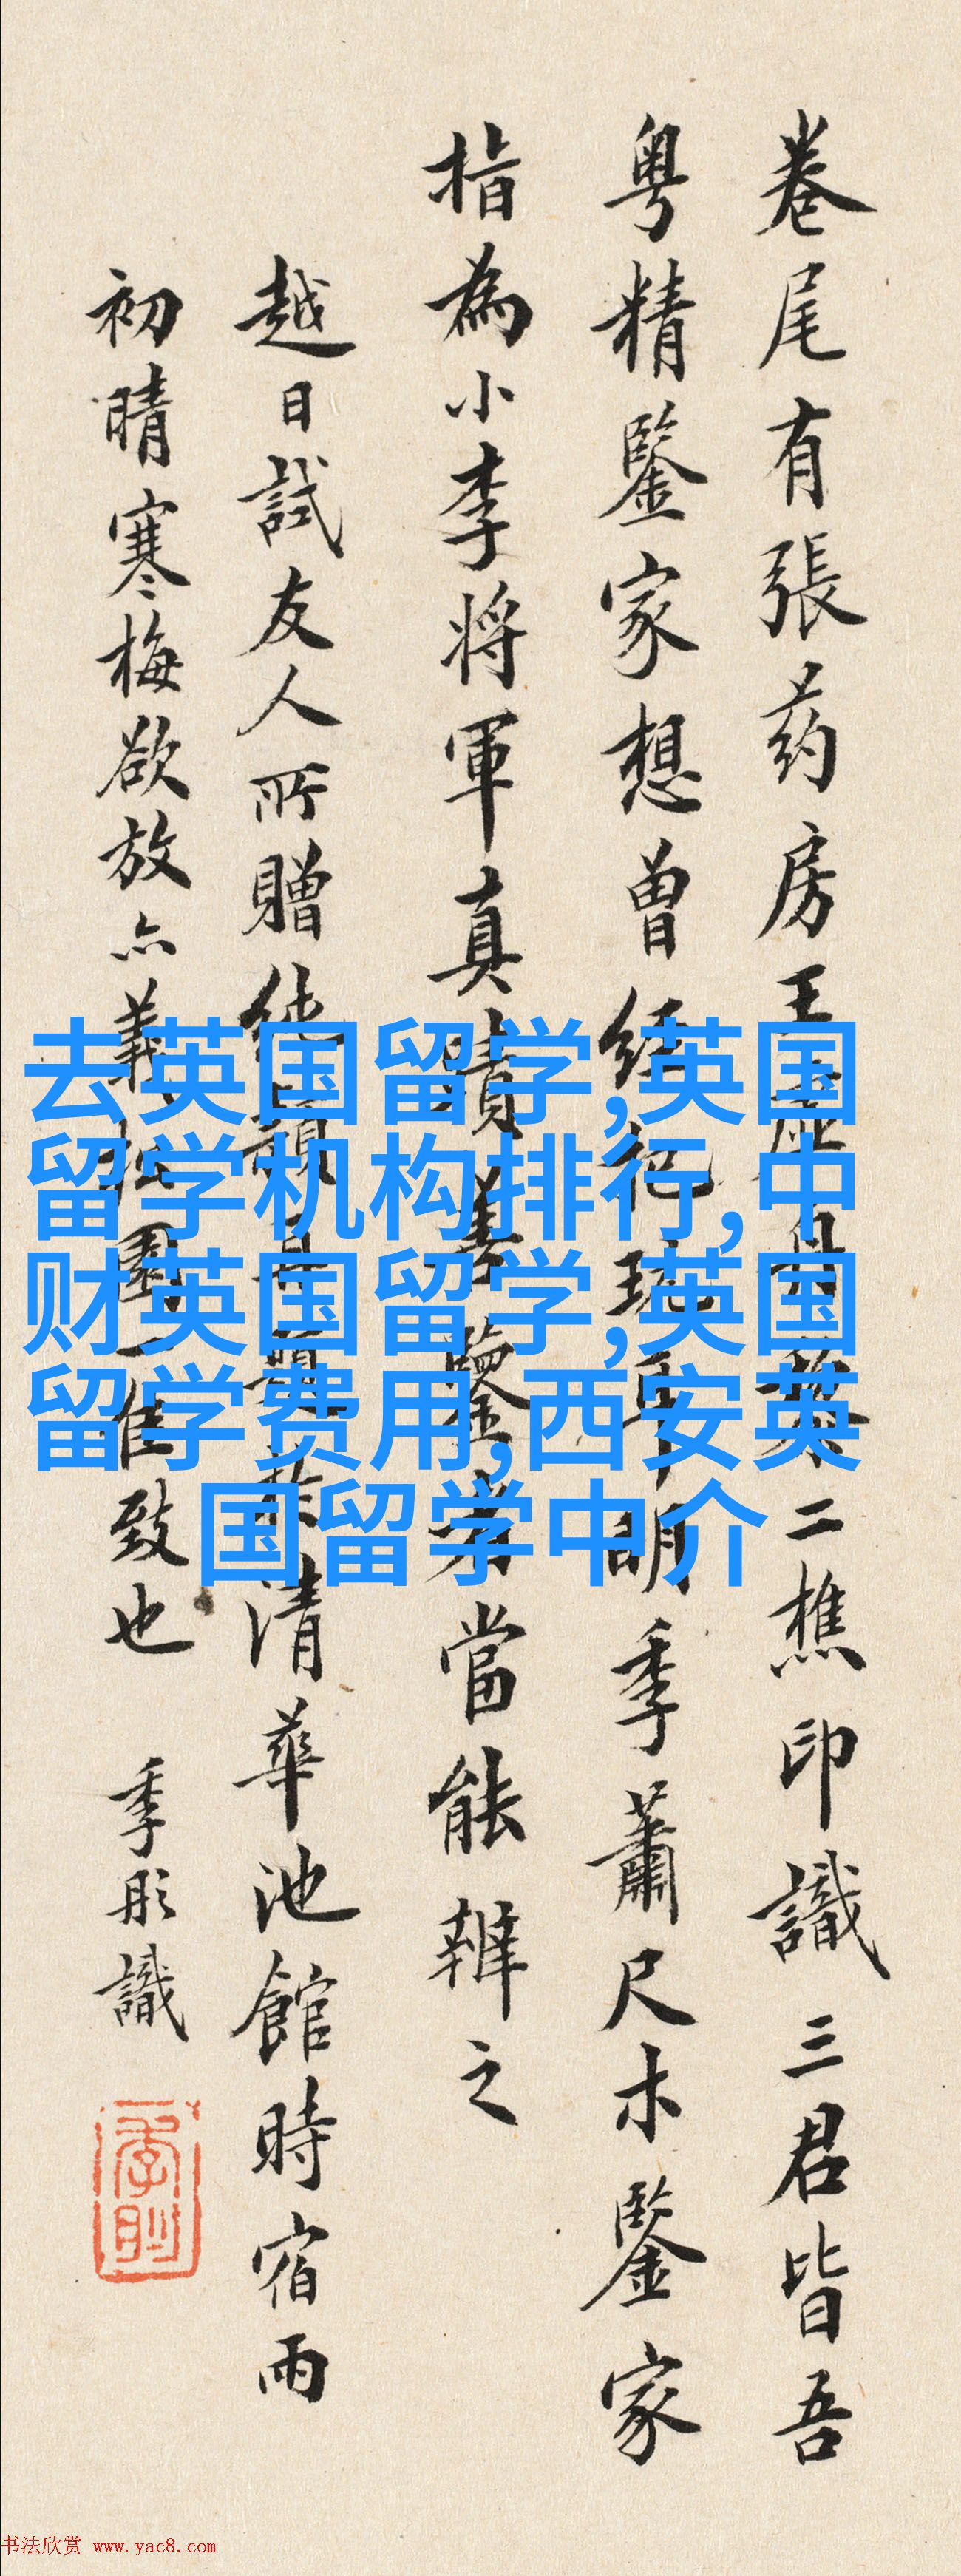 卷尾有張药房王
二樵印識三君皆吾
粤精鑒家想曾經
明季蕭尺木鑒家
指為小李將軍真蹟
鑒者當能辨之
越日試友人所贈
清華池館時宿雨
初晴寒梅欲放亦
致也
季彤識
去英国留学,英国
留学机构排行,中
财英国留学,英国
留学费用,西安英
国留学中介
书法欣赏 www.yac8.com